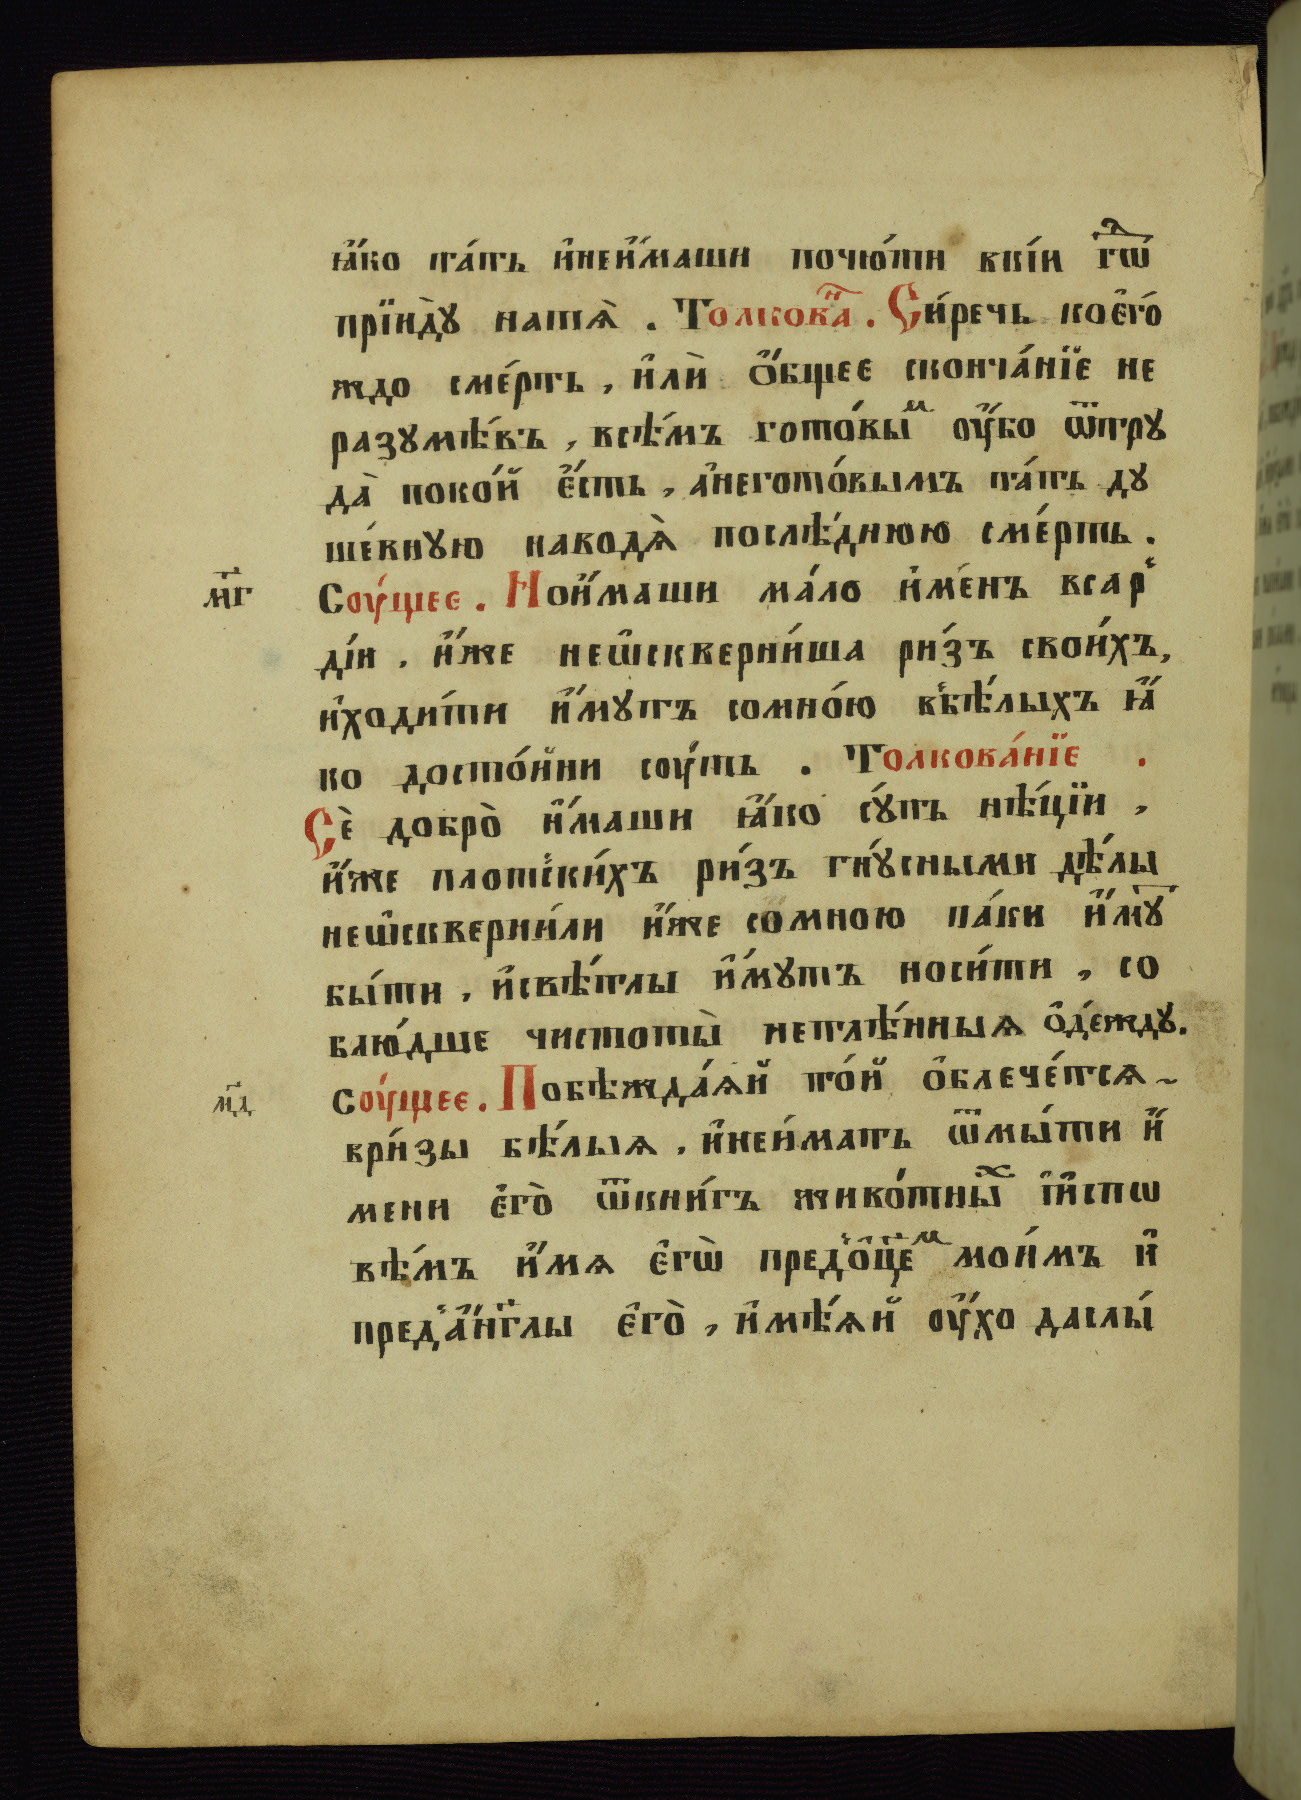 ꙗ҆́ко та́ть и҆неи҆́маши почю́ти вкі́и гѡⷣ
прїидꙋ̀ натѧ̀ . Толкова́ⁿ . Си́речь кое҆го́
ждо сме́рть , и҆лѝ ѻ҆́бщее сконча́нїе не
разꙋмѣ́въ , всѣ́мъ гото́выⷨ ᲂу҆́бо ѿтрꙋ
да̀ поко́й є҆́сть , а҆неготто́вымъ та́ть дꙋ
ше́внꙋю наводѧ̀ послѣ́днюю сме́рть .
м҃г Соу́щее . Нои҆́маши ма́ло и҆ме́нъ всар
ді́и . и҆́же неѡ҆скверни́ша ри́зъ свои́хъ,
и҆ходи́ти и҆́мꙋтъ сомно́ю вбѣ́лыхъ ꙗ҆́
ко досто́йни соу́ть . Толкова́нїе .
Се̑ добро̀ и҆́маши ꙗ҆́ко сꙋ́ть нѣ́цїи ,
и҆́же плотски́хъ ри́зъ гнꙋ́сными дѣ́лы
неѡ҆скверни́ли и҆́же сомною па́ки и҆́мꙋ̅
бы́ти , и҆свѣ́тлы и҆́мꙋтъ носи́ти , со
блю́дше чистоты̀ нетлѣ́нныѧ ѻ҆де́ждꙋ.
м҃д Соу́щее . Побѣжда́ѧй то́й ѻ҆блече́тсѧ ~
ври́зы бѣ́лыѧ , и҆неи́мать ѿмы́ти и҆́
мени є҆го̀ ѿкни́гъ живо́тныⷯ и҆и҆спѡ
вѣ́мъ и҆́мѧ є҆гѡ̀ предѻ҆ц҃еⷨ мои́мъ и҆
преда҆́нг҃лы є҆го̀ , и҆мѣ́ѧй ᲂу҆́хо даслы́